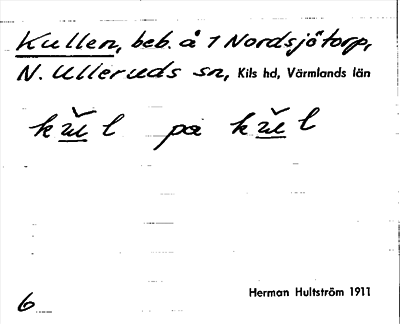 Kullen, beb. å 1 Nordsjötorp,
N. Ulleruds sn, Kils hd, Värmlands län
på
Herman Hultström 1911
6